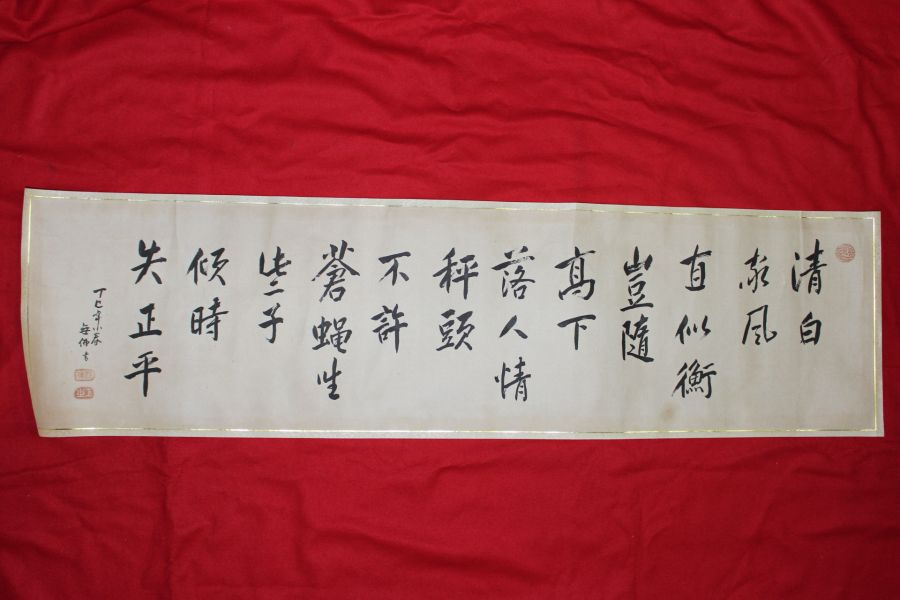 清白
家風
直似衡
豈隨
高下
落人情
秤頭
不許
蒼蠅坐
些子
傾時
失正平
丁巳年小春
佛書